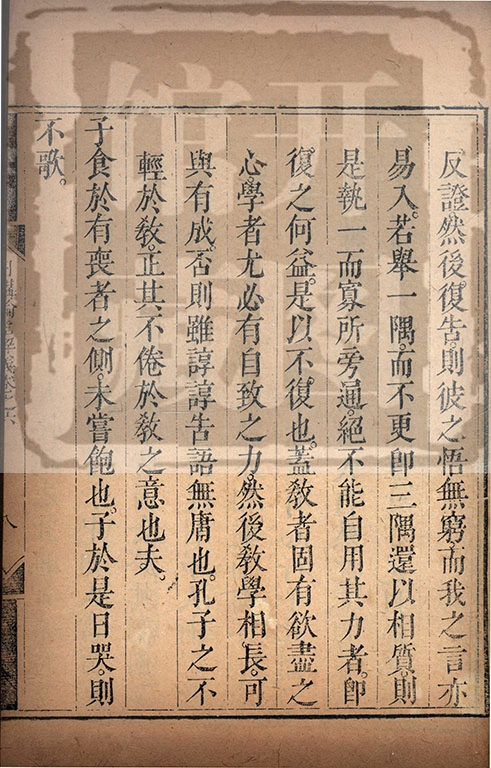 反證然後復告則彼之悟無窮而我之言亦
易入若舉一隅而不更即三隅還以相質則
是執一而寡所旁通絕不能自用其力者即
復之何益是以不復也蓋敎者固有欲盡之
心學者尤必有自致之力然後敎學相長可
與有成否則雖諄諄告語無庸也孔子之不
輕於敎正其不倦於敎之意也夫
子食於有喪者之側未嘗飽也子於是日哭則
不歌
八